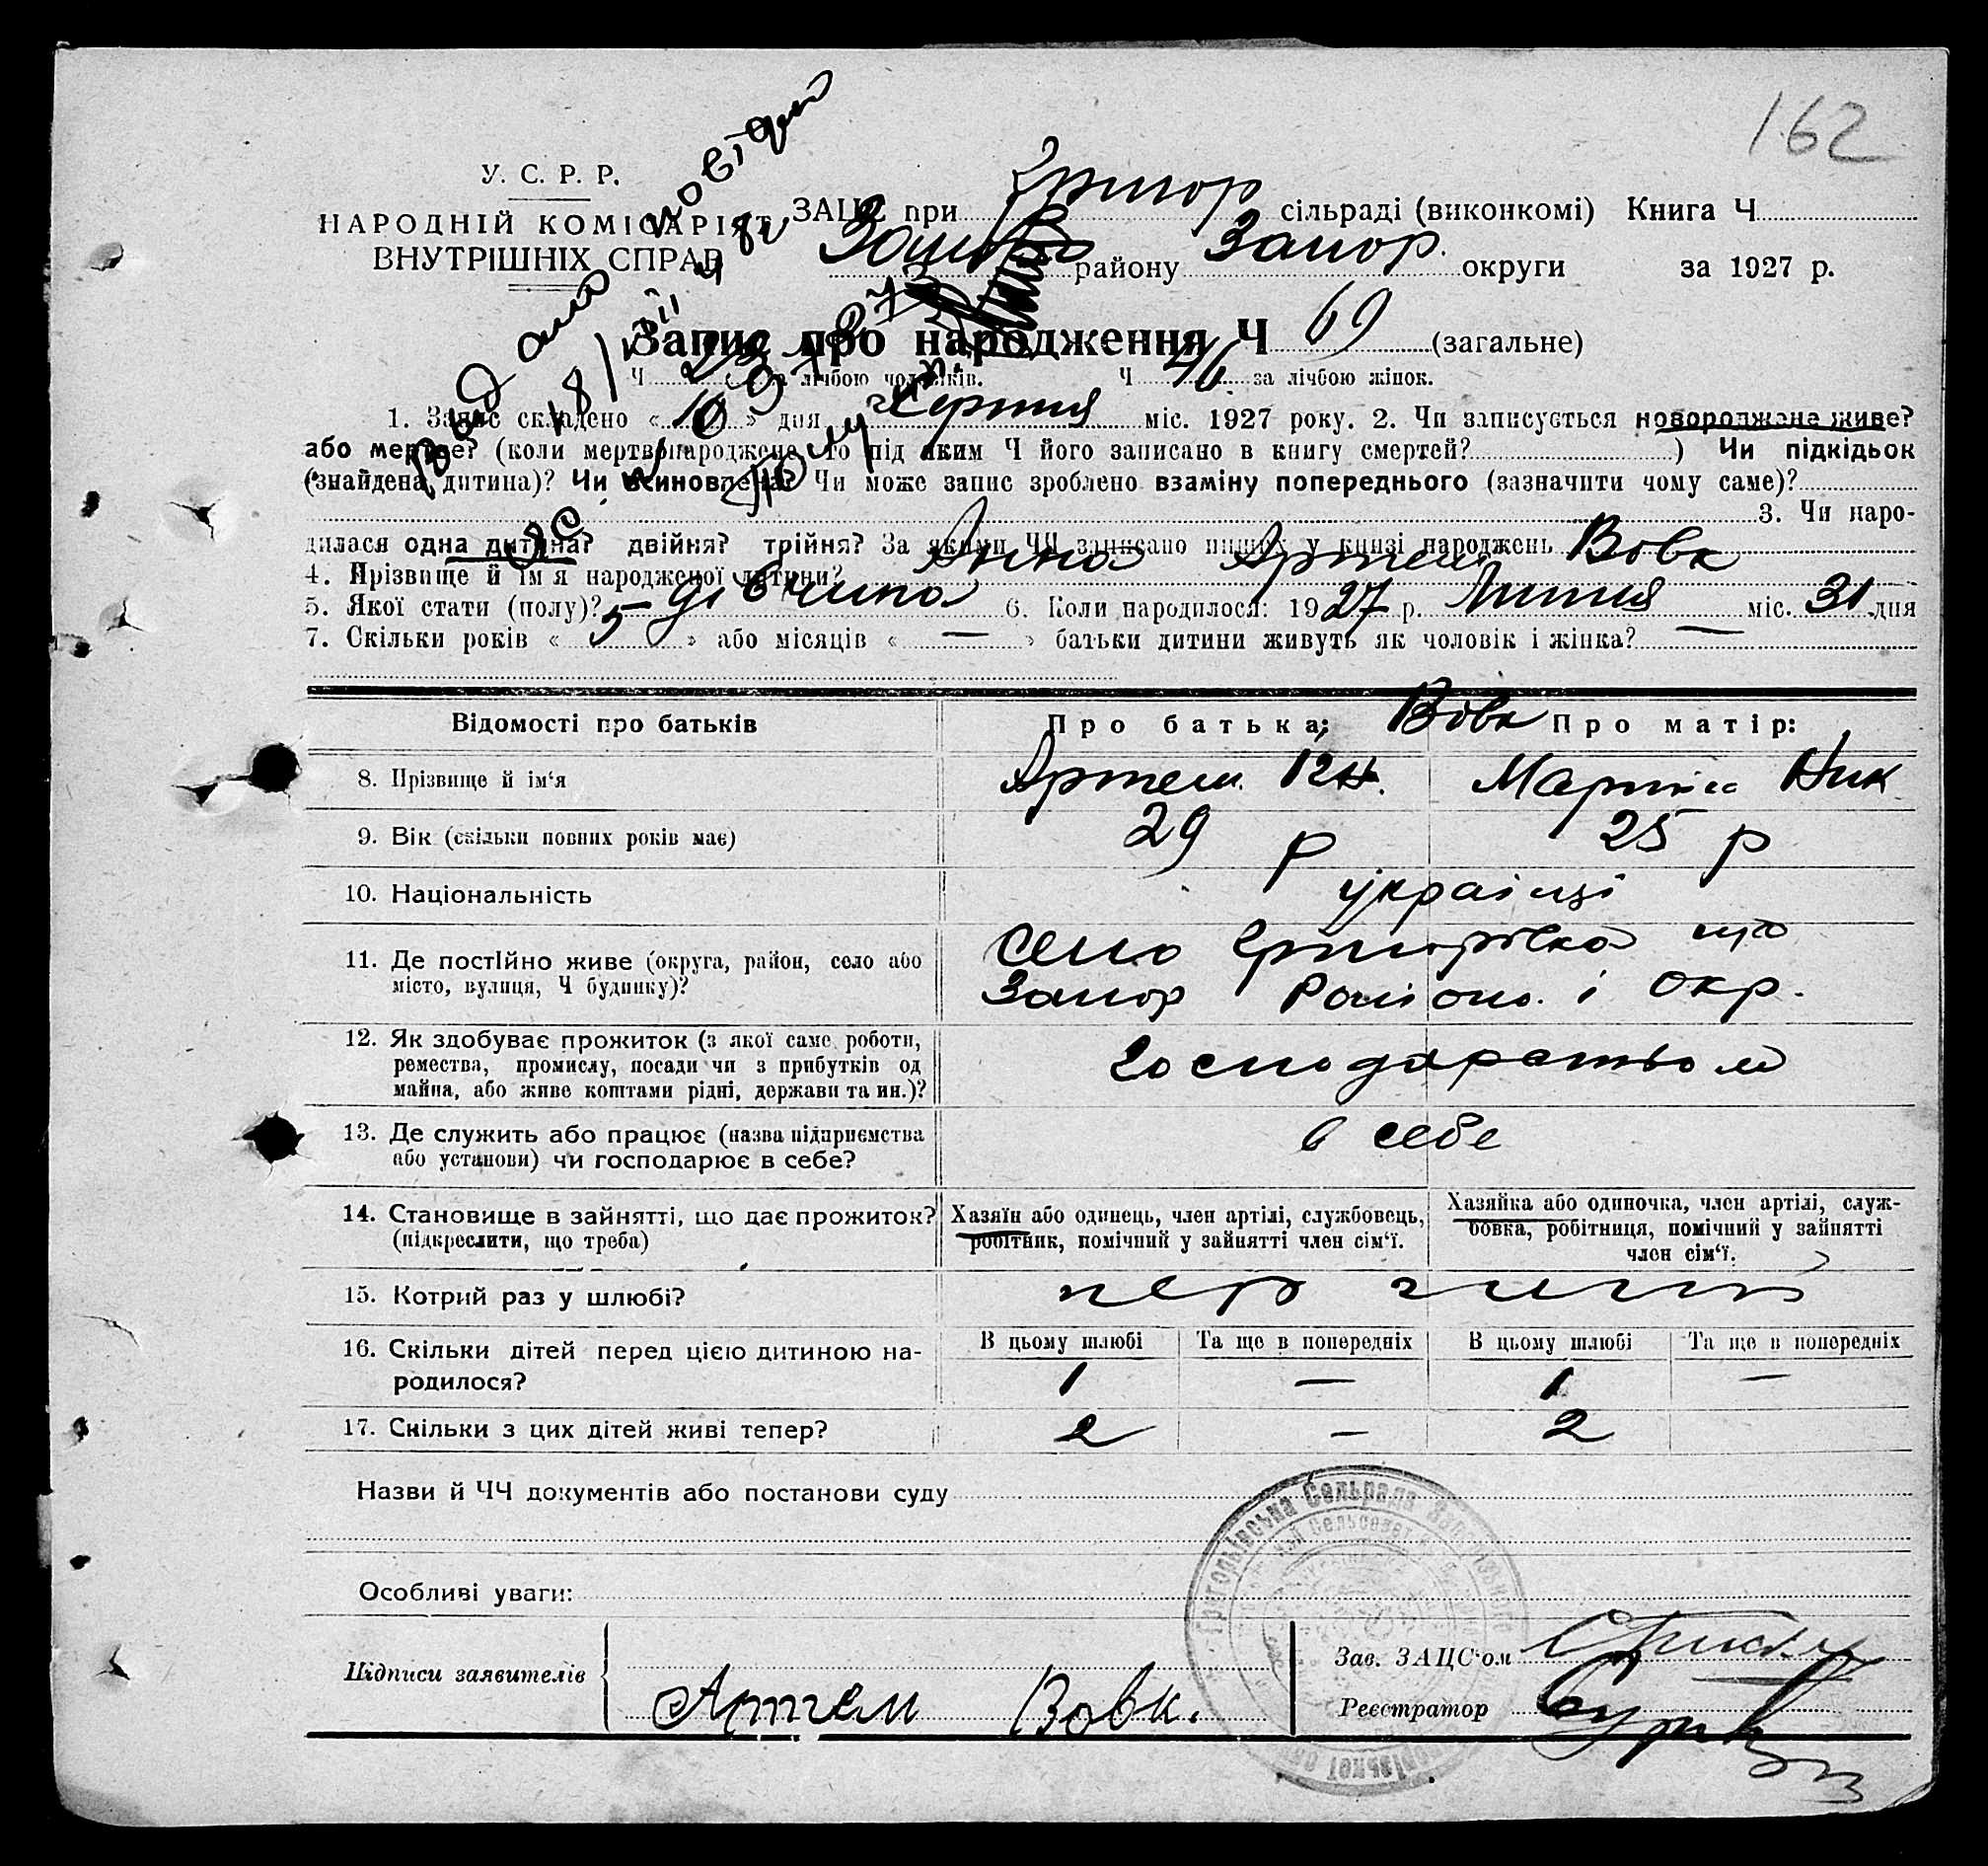 162
У. С. Р. Р.
НАРОДНІЙ КОМІСАРІЯТ
ВНУТРІШНІХ СПРАВ
ЗАЦС при Григор сільраді (виконкомі) Книга Ч
Запор району Запор. округи за 1927 р.
Запис про народження Ч 69 (загальне)
Ч за лічбою чоловіків. Ч 46 за лічбою жінок.
1. Запис складено « 10 » дня Серпня міс. 1927 року. 2. Чи записується новороджене живе?
або мертве? (коли мертвонароджене, то під яким Ч його записано в книгу смертей? ) Чи підкідьок
(знайдена дитина)? Чи всиновлена? Чи може запис зроблено взаміну попереднього (зазначити чому саме)?
3. Чи наро-
дилася одна дитина? двійня? трійня? За якими ЧЧ записано инших у книзі народжень
4. Прізвище й ім'я народженої дитини? Анна Артем. Вовк
5. Якої стати (полу)? дівчина 6. Коли народилося: 1927 р. Липня міс. 31 дня
7. Скільки років « 5 » або місяців « — » батьки дитини живуть як чоловік і жінка? —
Відомості про батьків Про батька: Вовк Про матір:
8. Прізвище й ім'я Артем Марфа Ник
9. Вік (скільки повних років має) 29 р 25 р
10. Національність українці
11. Де постійно живе (округа, район, село або
місто, вулиця, Ч будинку)?
село Григорівка
Запор Району і окр.
12. Як здобуває прожиток (з якої саме роботи,
ремества, промислу, посади чи з прибутків од
майна, або живе коштами рідні, держави та ин.)?
господарством
13. Де служить або працює (назва підприємства
або установи) чи господарює в себе?
в себе
14. Становище в зайнятті, що дає прожиток?
(підкреслити, що треба)
Хазяїн або одинець, член артілі, службовець,
робітник, помічний у зайнятті член сім'ї.
Хазяйка або одиночка, член артілі, служ-
бовка, робітниця, помічний у зайнятті
член сім'ї.
15. Котрий раз у шлюбі?
16. Скільки дітей перед цією дитиною на-
родилося?
В цьому шлюбі Та ще в попередніх В цьому шлюбі Та ще в попередніх
1 — 1 —
17. Скільки з цих дітей живі тепер? 2 — 2
Назви й ЧЧ документів або постанови суду
Особливі уваги:
Підписи заявителів
Артем Вовк.
Зав. ЗАЦС'ом
Реєстратор
Григорівська Сельрада